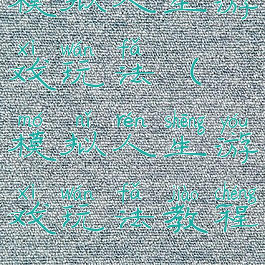 模拟人生游
xì wán fǎ
戏玩法（
mó nǐ rén shēng yóu
模拟人生游
xì wán fǎ jiào chéng
戏玩法教程